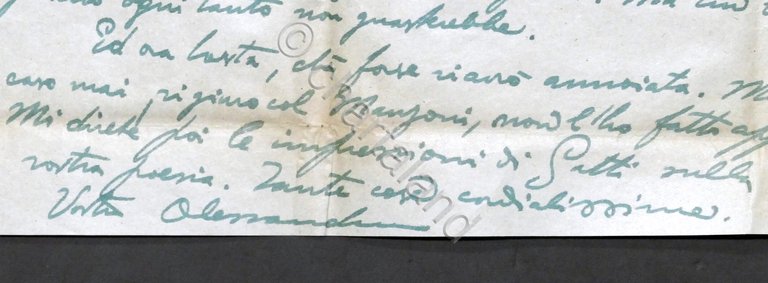 ogni tanto non guasterebbe.
Ed ora basta, chè forse vi avrò annoiata. Ma
caso mai, vi giuro col Manzoni, non l'ho fatto app
Mi direte poi le impressioni di Gatti sulla
vostra poesia. Tante cose cordialissime.
Vostro Alessandro
© Chartaland